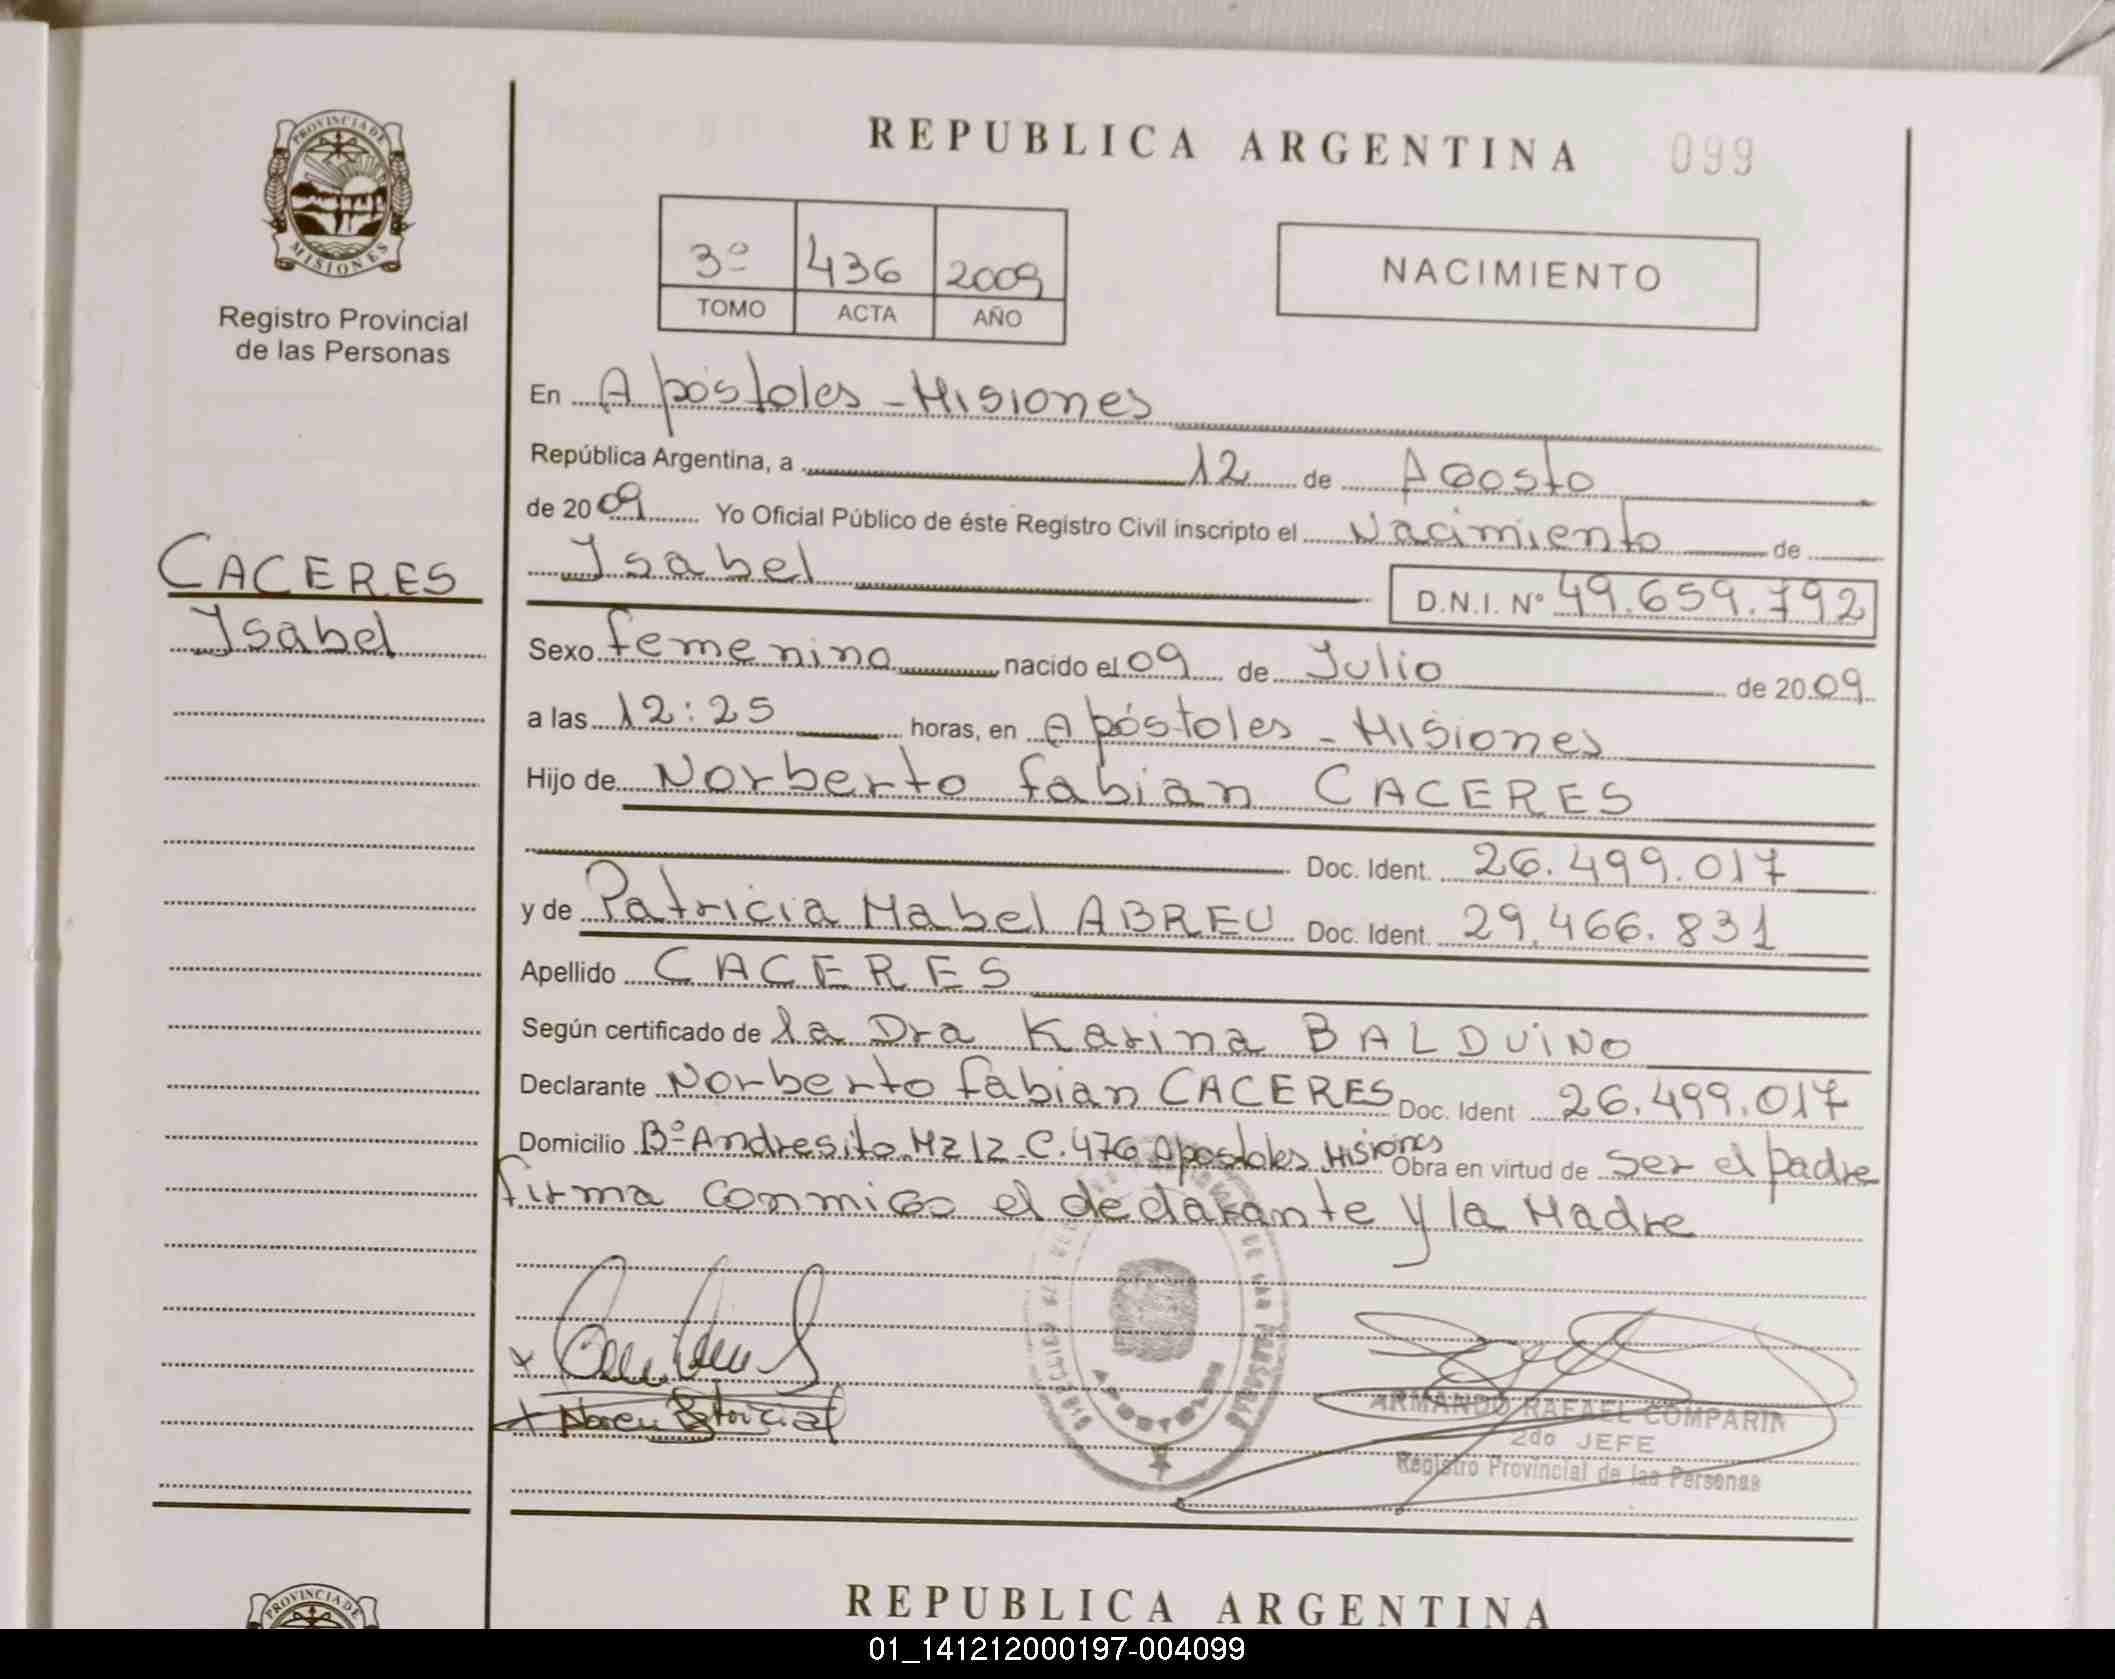 REPUBLICA ARGENTINA 099
PROVINCIA DE
MISIONES
Registro Provincial
de las Personas
3º 436 2009
TOMO ACTA AÑO
NACIMIENTO
En Apóstoles - Misiones
República Argentina, a 12 de Agosto
de 2009 Yo Oficial Público de éste Registro Civil inscripto el Nacimiento de
Isabel D.N.I. Nº 49.659.792
CACERES
Isabel
Sexo femenino nacido el 09 de Julio de 2009
a las 12:25 horas, en Apóstoles - Misiones
Hijo de Norberto fabian CACERES
Doc. Ident. 26.499.017
y de Patricia Mabel ABREU Doc. Ident. 29.466.831
Apellido CACERES
Según certificado de la Dra Karina BALDUiNO
Declarante Norberto fabian CACERES Doc. Ident 26.499.017
Domicilio Bº Andresito Mz 12 C.476 Apostoles Misiones Obra en virtud de ser el padre
firma conmigo el declarante y la Madre
APOSTOLES
ARMANDO RAFAEL COMPARIN
2do JEFE
Registro Provincial de las Personas
PROVINCIA DE
REPUBLICA ARGENTINA
01_141212000197-004099